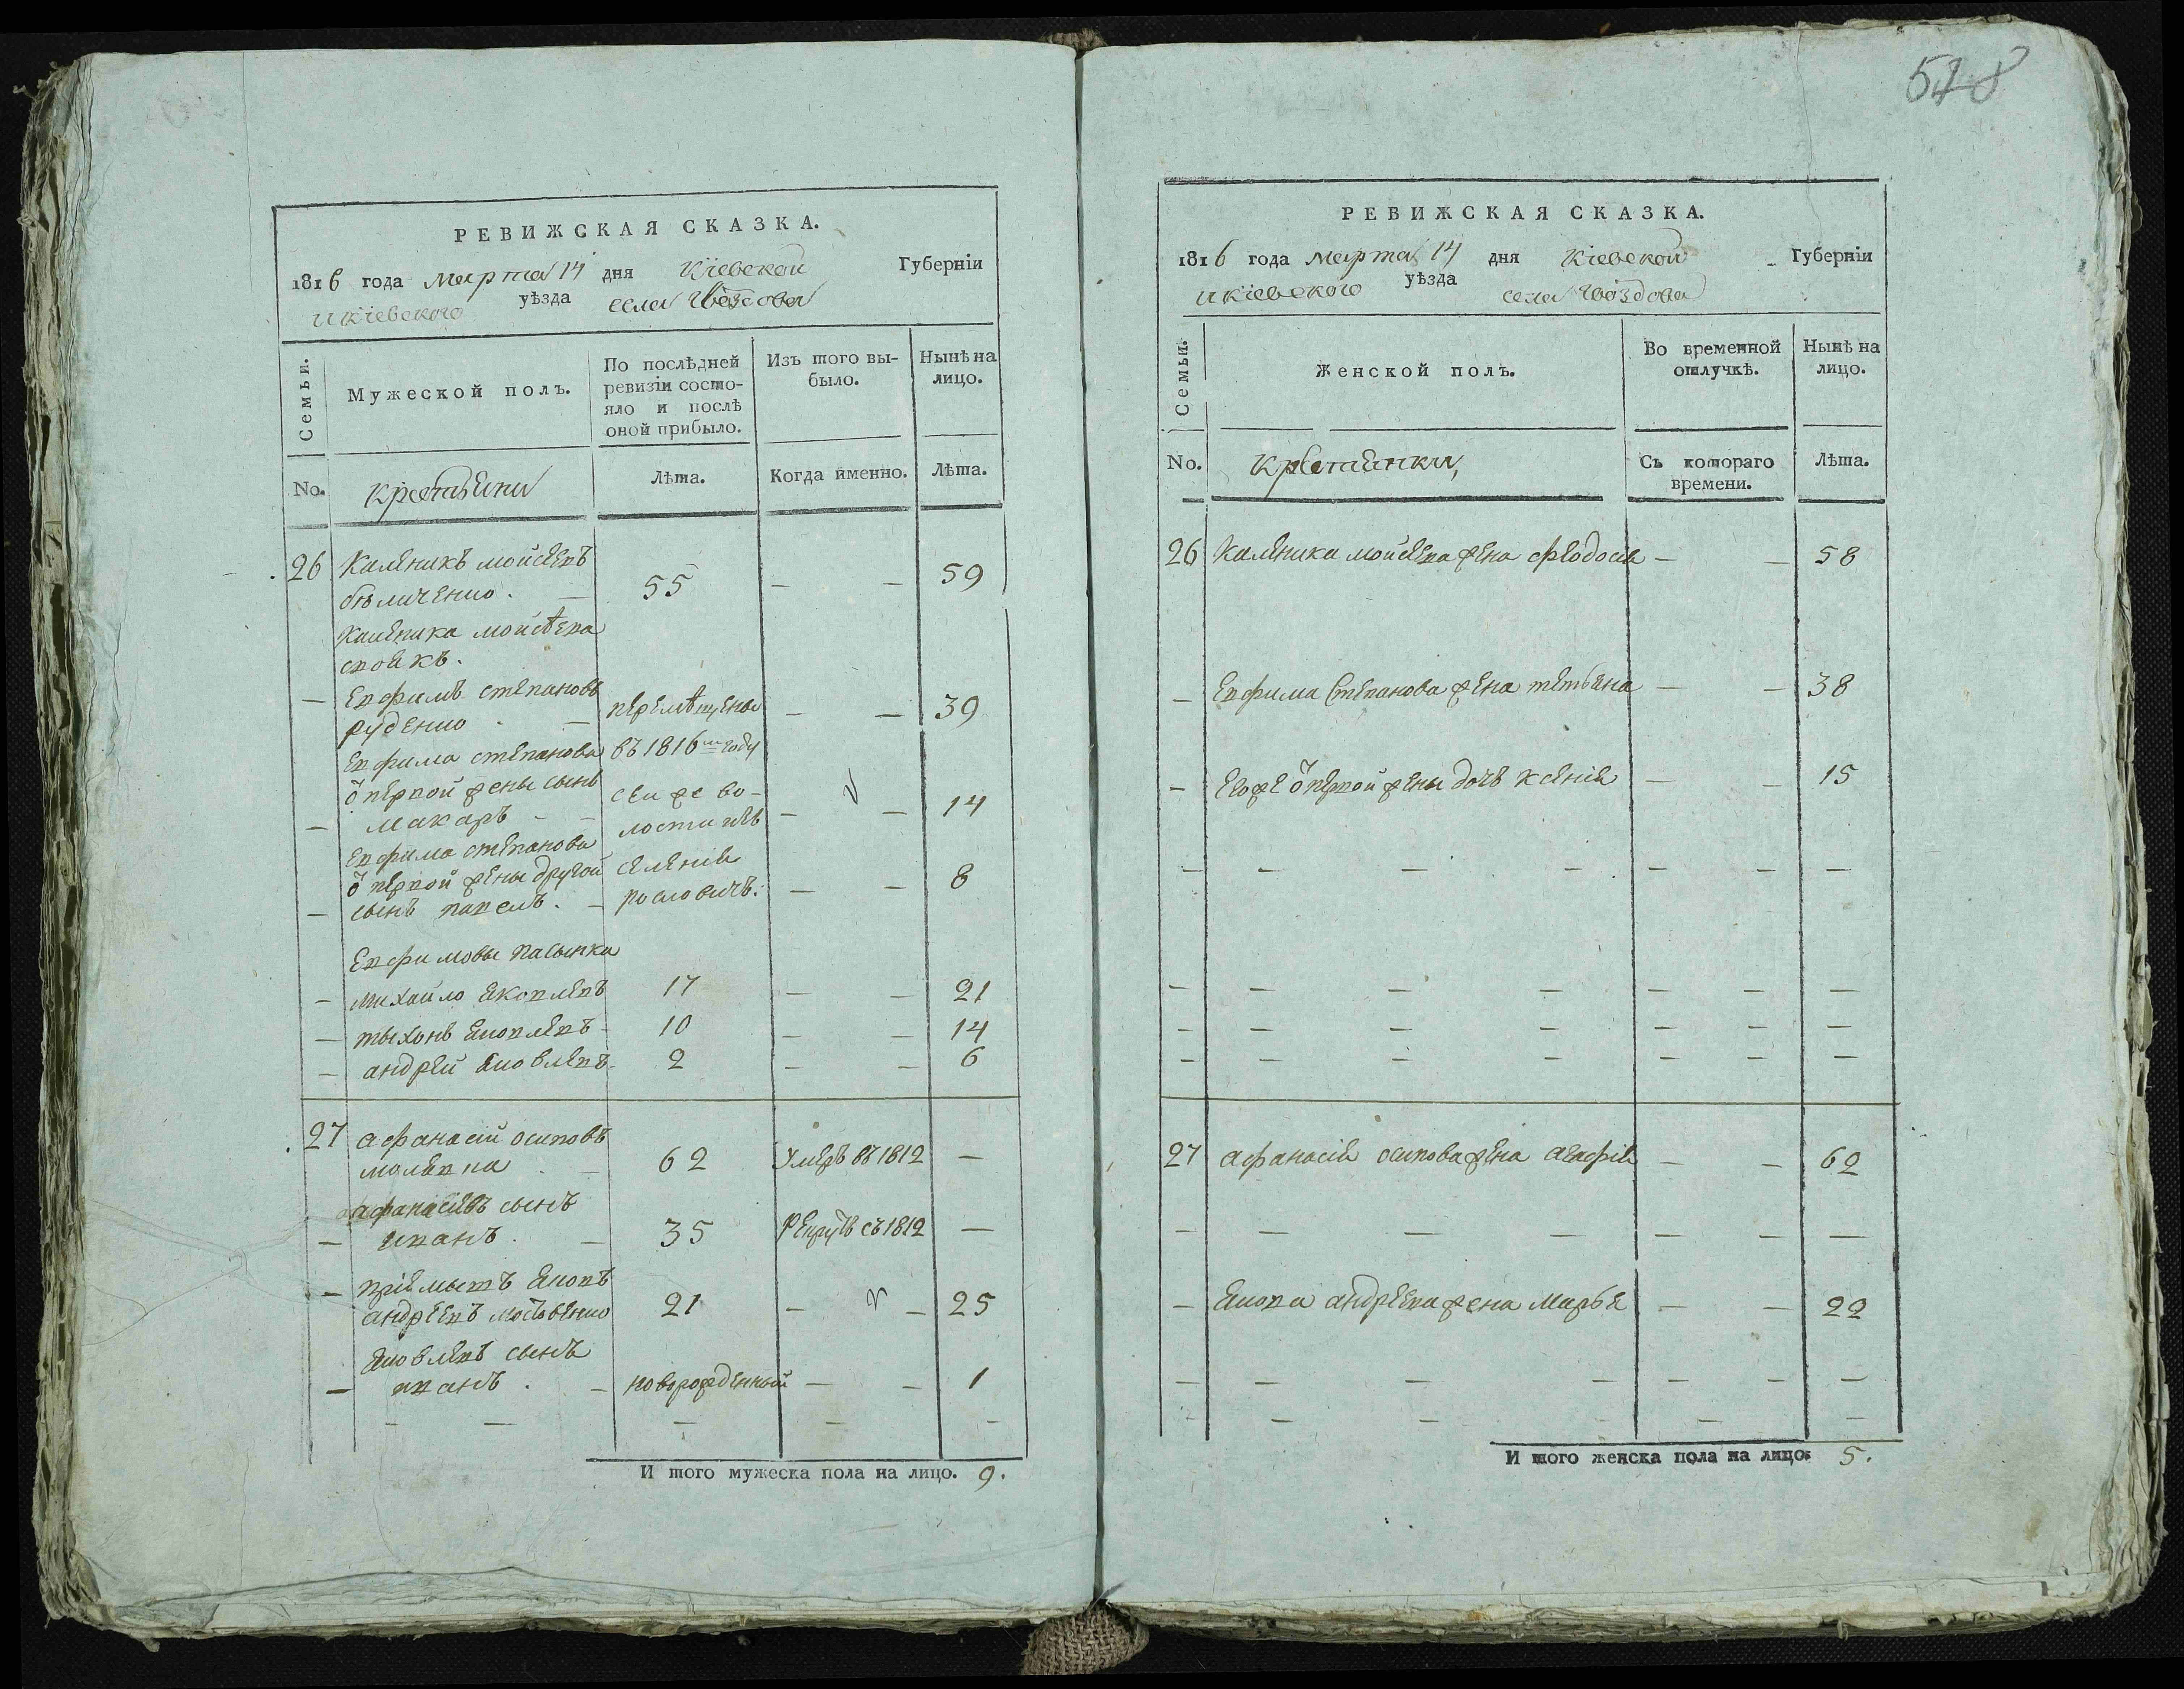 518
РЕВИЖСКАЯ СКАЗКА.
1816 года марта 14 дня Кіевской Губерніи
и кіевского уѣзда села Гвоздова
Семьи.
Мужеской полъ.
По послѣдней
ревизіи состо-
яло и послѣ
оной прибыло.
Изъ того вы-
было.
Нынѣ на
лицо.
No.
Лѣта.
Когда именно.
Лѣта.
26 Каленикъ мойсеевъ
бѣличенко. — 55 — — 59
Каленика мойсѣева
своякъ.
— Евфимъ степановъ
руденко . — перемѣщены — — 39
Евфима степанова въ 1816м году
ѿ первой жены сынъ сей же во-
— макаръ — — лости изъ — — 14
Евфима степанова
ѿ первой жены другой селенія
— сынъ павелъ. — рославичъ. — — 8
Евфимовы пасынки
— михайло яковлевъ 17 — — 21
— тыхонъ яковлевъ — 10 — — 14
— андрей яковлевъ 2 — — 6
27 афанасій осиповъ
— 62 Умеръ въ 1812 —
афанасіевъ сынъ
— иванъ . — 35 рекрутъ съ 1812 —
— пріемышъ яковъ
андреевъ 21 — — 25
яковлевъ сынъ
— иванъ . — новорожденный — — 1
— — — — —
И того мужеска пола на лицо. 9.
РЕВИЖСКАЯ СКАЗКА.
1816 года марта 14 дня Кіевской Губерніи
и кіевского уѣзда села Гвоздова
Семьи.
Женской полъ.
Во временной
отлучкѣ.
Нынѣ на
лицо.
No.
Съ котораго
времени.
Лѣта.
26 Каленика мойсеева жена феодосія — — 58
— Евфима Степанова жена тетьяна — — 38
— Егоже ѿ первой жены дочь ксенія — — 15
— — — — — — —
— — — — — — —
— — — — — — —
— — — — — — —
27 афанасія осипова жена агафія — — 62
— — — — — — —
— якова андреева жена марья — — 22
— — — — — — —
— — — — — —
И того женска пола на лицо: 5.